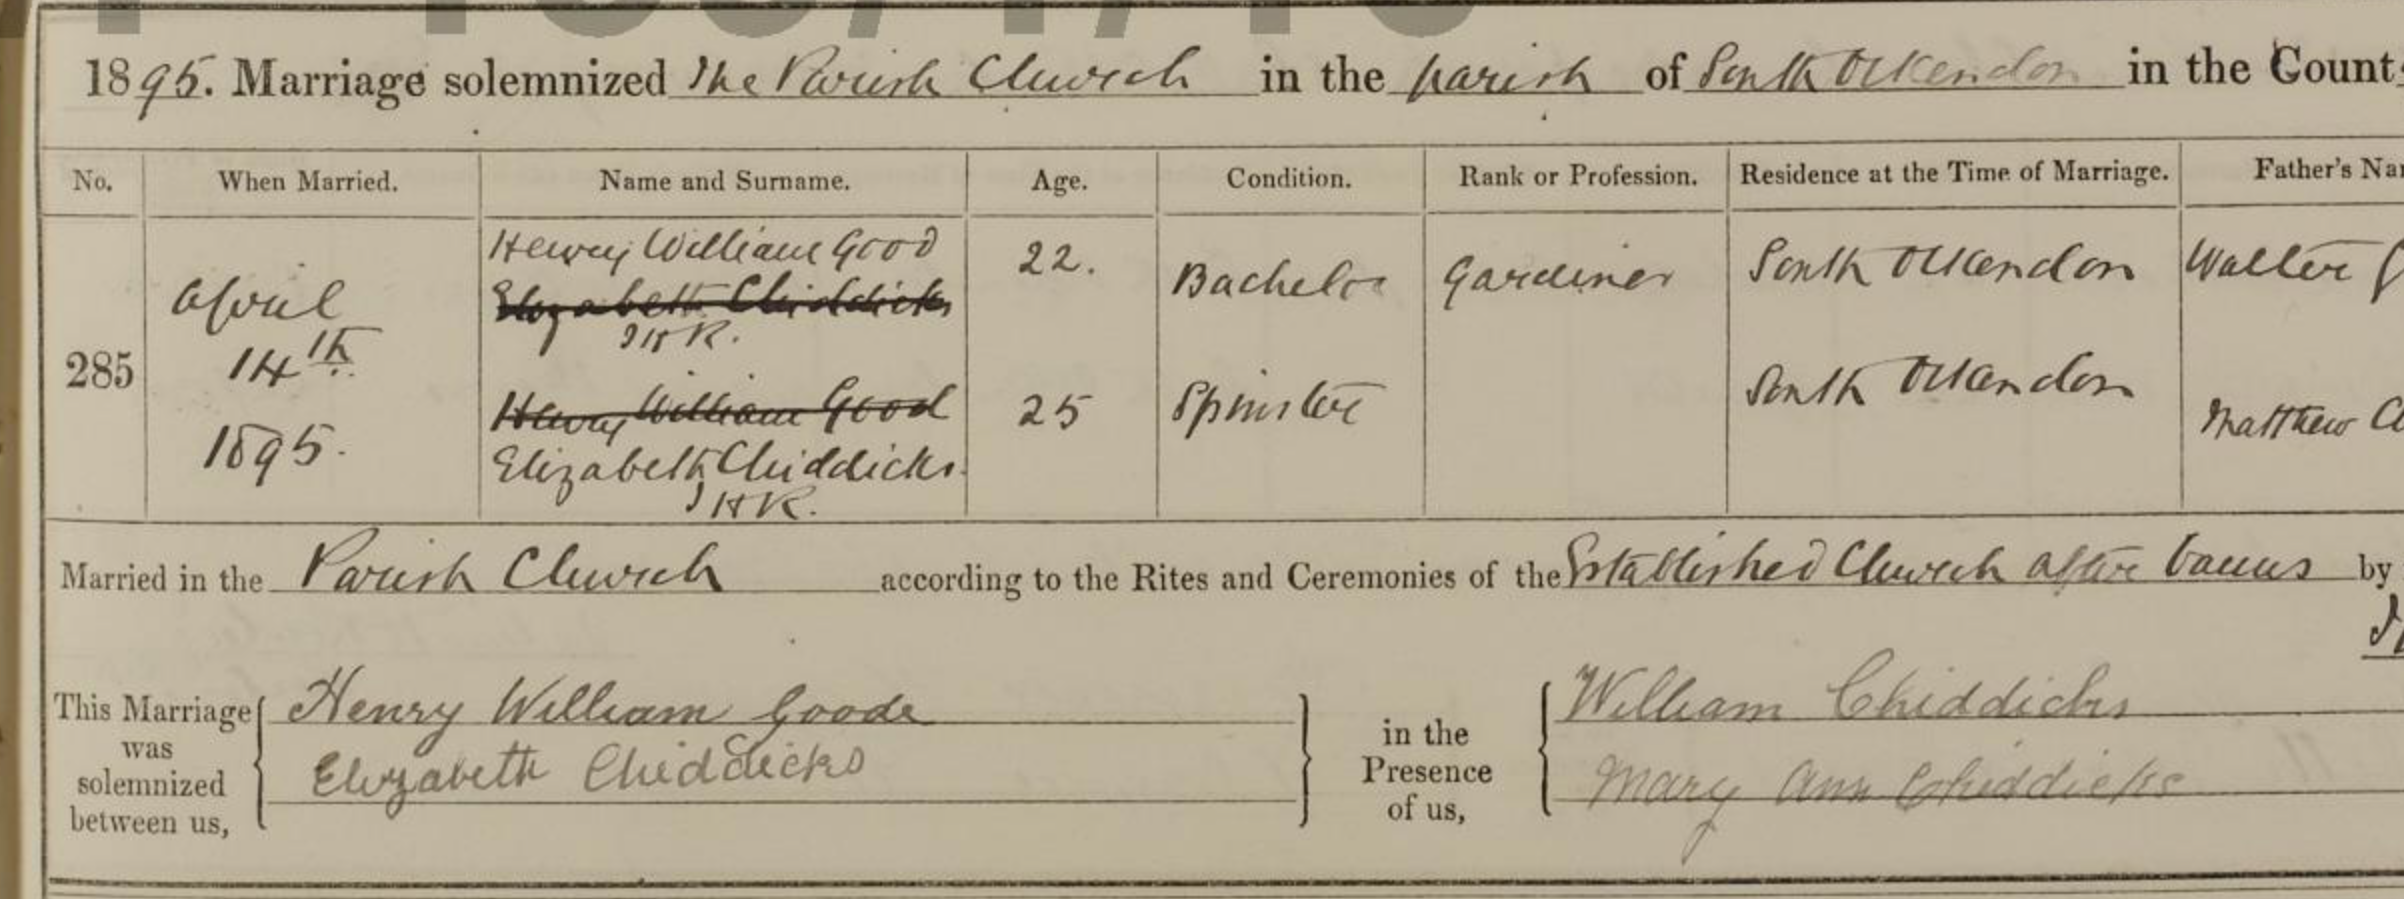 1895. Marriage solemnized The Parish Church in the parish of South Ockendon in the Count
No. When Married. Name and Surname. Age. Condition. Rank or Profession. Residence at the Time of Marriage. Father's Na
Henry William Good 22. Bachelor Gardiner South Ockendon Walter
Elizabeth Chiddicks
JHR.
285 April 14th 1895.
Henry William Good 25 Spinster South Ockendon Matthew
Elizabeth Chiddicks
JHR.
Married in the Parish Church according to the Rites and Ceremonies of the Established Church after banns by
This Marriage was solemnized between us, Henry William Goode in the Presence of us, William Chiddicks
Elizabeth Chiddicks Mary Ann Chiddicks